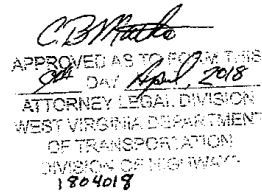 APPROVED AS TO FORM THIS
DAY April, 2018
ATTORNEY LEGAL DIVISION
WEST VIRGINIA DEPARTMENT
OF TRANSPORTATION
DIVISION OF HIGHWAYS
1804018